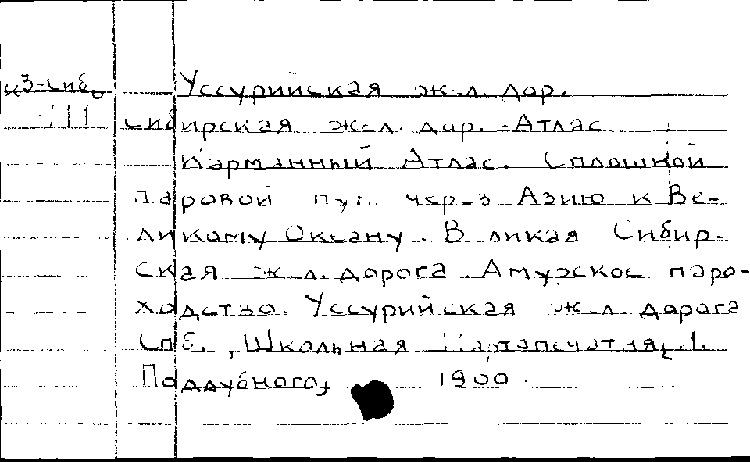 к3-сиб. Уссурийская ж.-л. дор.
111 Сибирская ж.-л. дор. - Атлас
Карманный Атлас. Сплошной
паровой пут. через Азию к Ве-
ликому Океану. Великая Сибир-
ская ж.л. дорога Амурское паро-
ходство. Уссурийская ж.л. дорога
Спб., Школьная
Поддубного, 1900.